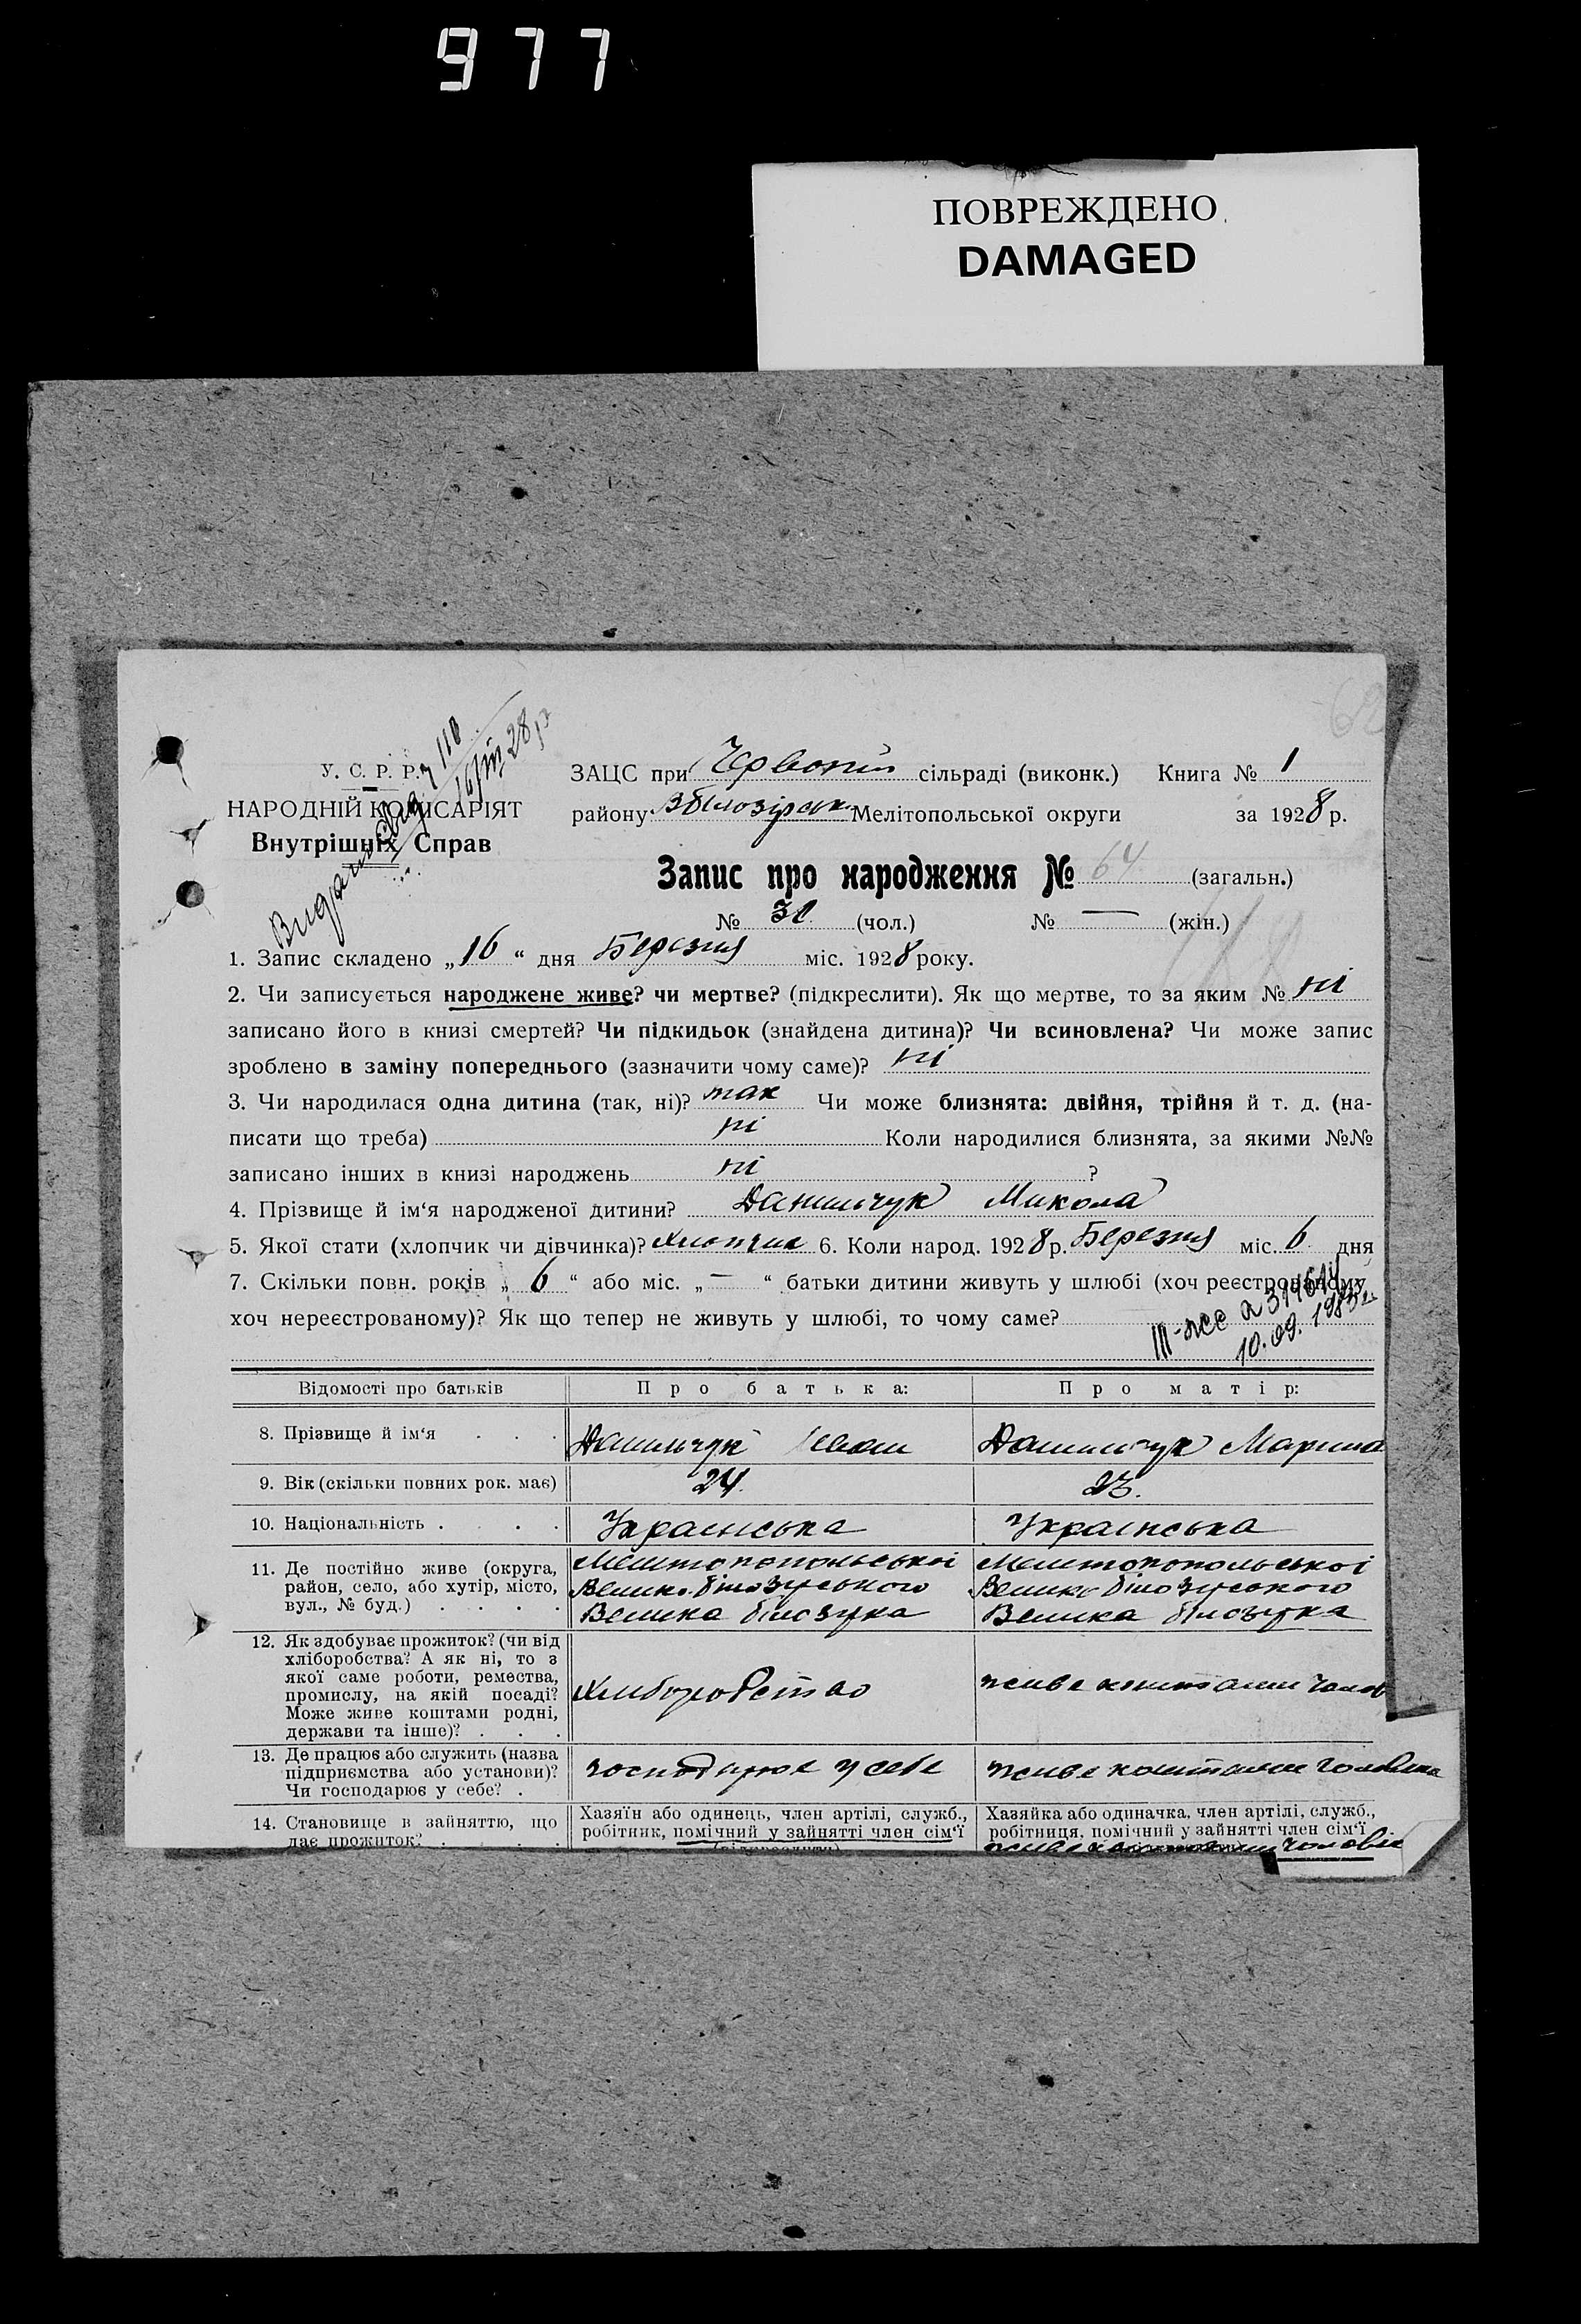 977
ПОВРЕЖДЕНО
DAMAGED
У. С. Р. Р.
НАРОДНІЙ КОМІСАРІЯТ
Внутрішніх Справ
ЗАЦС при Червоній сільраді (виконк.) Книга № 1
району Мелітопольської округи за 1928 р.
Запис про народження № 64 (загальн.)
№ (чол.) № — (жін.)
1. Запис складено „16“ дня Березня міс. 1928 року.
2. Чи записується народжене живе? чи мертве? (підкреслити). Як що мертве, то за яким № ні
записано його в книзі смертей? Чи підкидьок (знайдена дитина)? Чи всиновлена? Чи може запис
зроблено в заміну попереднього (зазначити чому саме)? ні
3. Чи народилася одна дитина (так, ні)? так Чи може близнята: двійня, трійня й т. д. (на-
писати що треба) ні Коли народилися близнята, за якими №№
записано інших в книзі народжень ні ?
4. Прізвище й ім‘я народженої дитини? Данильчук Микола
5. Якої стати (хлопчик чи дівчинка)? Хлопчик 6. Коли народ. 1928 р. Березня міс. 6 дня
7. Скільки повн. років „6“ або міс. „—“ батьки дитини живуть у шлюбі (хоч реєстрованому,
хоч нереєстрованому)? Як що тепер не живуть у шлюбі, то чому саме?
10.09.
Відомості про батьків Про батька: Про матір:
8. Прізвище й ім‘я . . . Данильчук Іван Данильчук Марина
9. Вік (скільки повних рок. має) 24. 23.
10. Національність . . . . Українська Українська
11. Де постійно живе (округа,
район, село, або хутір, місто,
вул., № буд.) . . . .
Мелітопопольської
Велико білозірського
Велика білозірка
Мелітопопольської
Велико білозірського
Велика білозірка
12. Як здобуває прожиток? (чи від
хліборобства? А як ні, то з
якої саме роботи, ремества,
промислу, на якій посаді?
Може живе коштами родні,
держави та інше)? . . .
Хліборобство
живе коштами чолов
13. Де працює або служить (назва
підприємства або установи)?
Чи господарює у себе? .
господарює у себе
живе коштами чоловіка
14. Становище в зайняттю, що
дає прожиток? . . .
Хазяїн або одинець, член артілі, служб.,
робітник, помічний у зайнятті член сім‘ї
Хазяйка або одиначка, член артілі, служб.,
робітниця, помічний у зайнятті член сім‘ї
живе коштами чоловіка